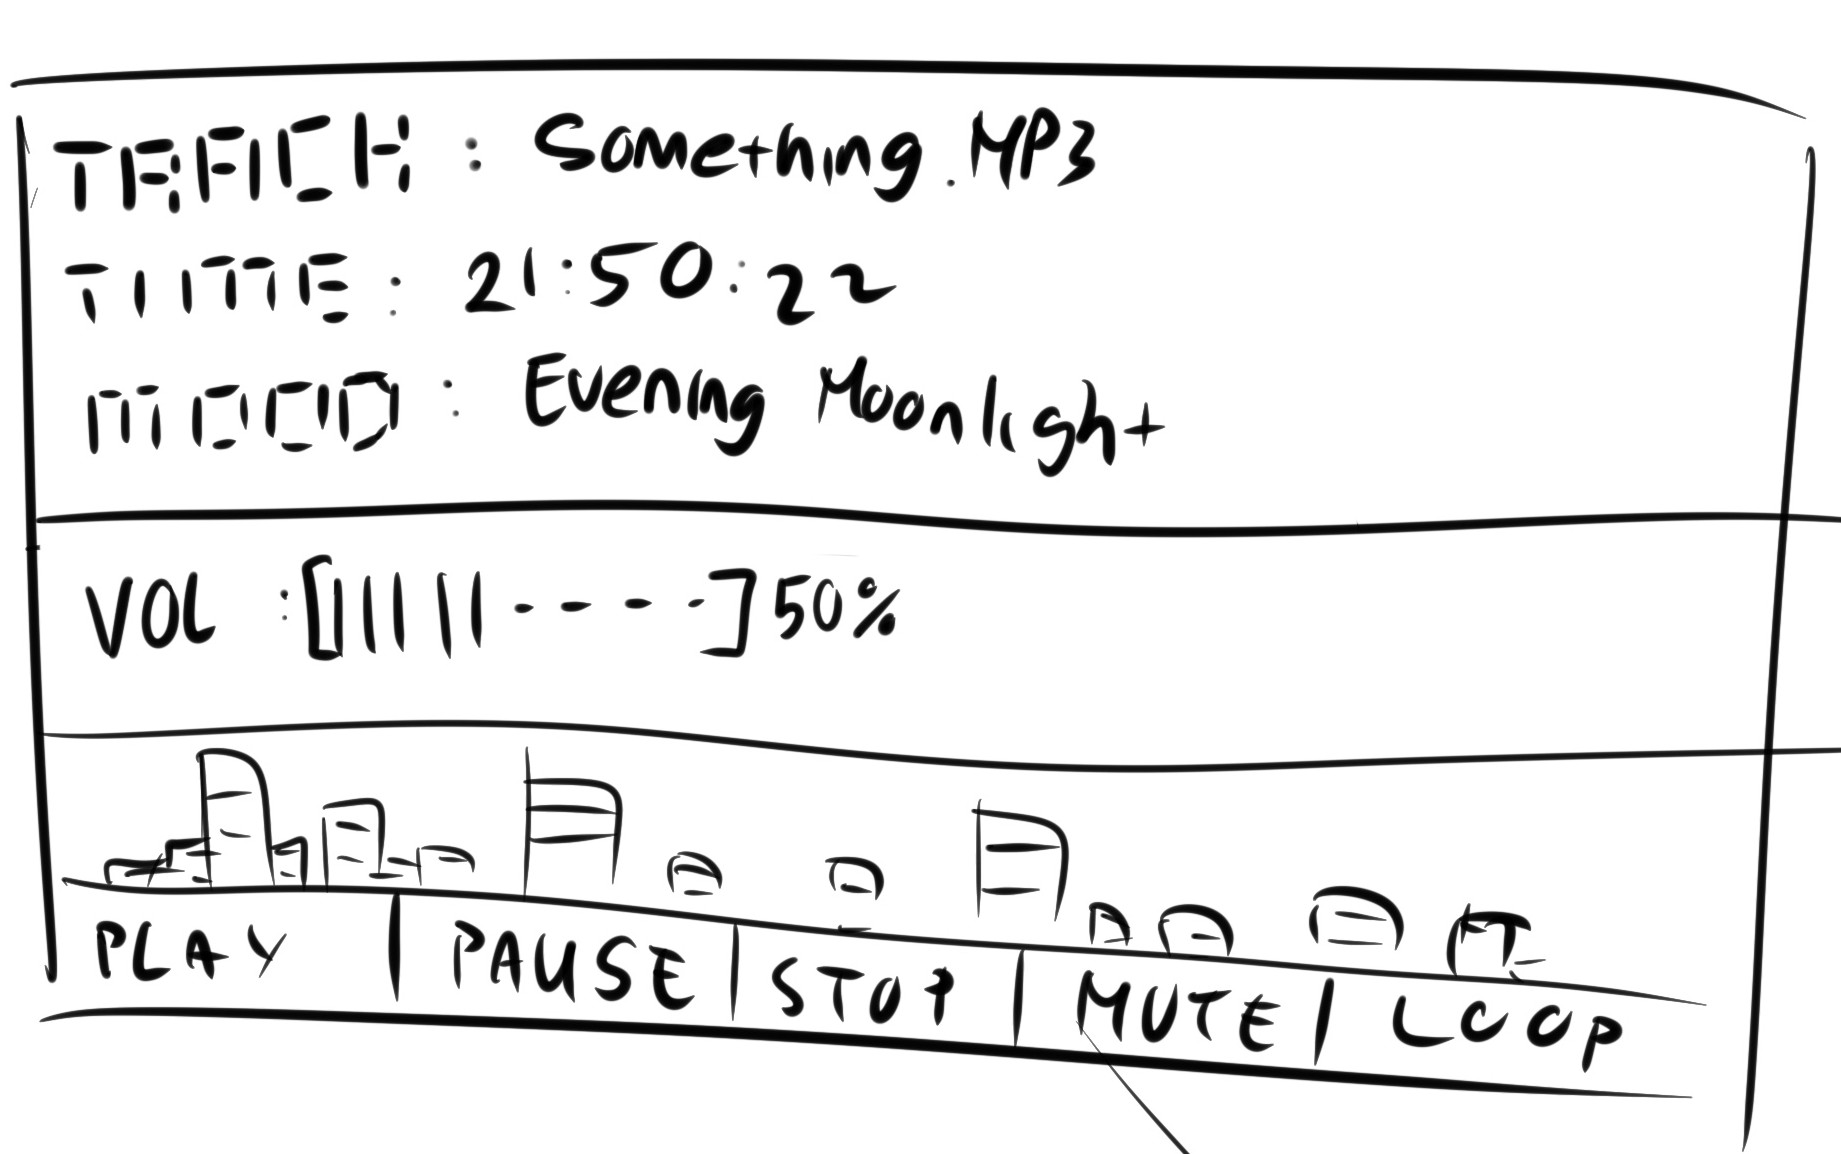 TRACK : Something.MP3
TIME : 21:50:22
MOOD : Evening Moonlight
VOL :[||||||----]50%
PLAY | PAUSE | STOP | MUTE | LOOP